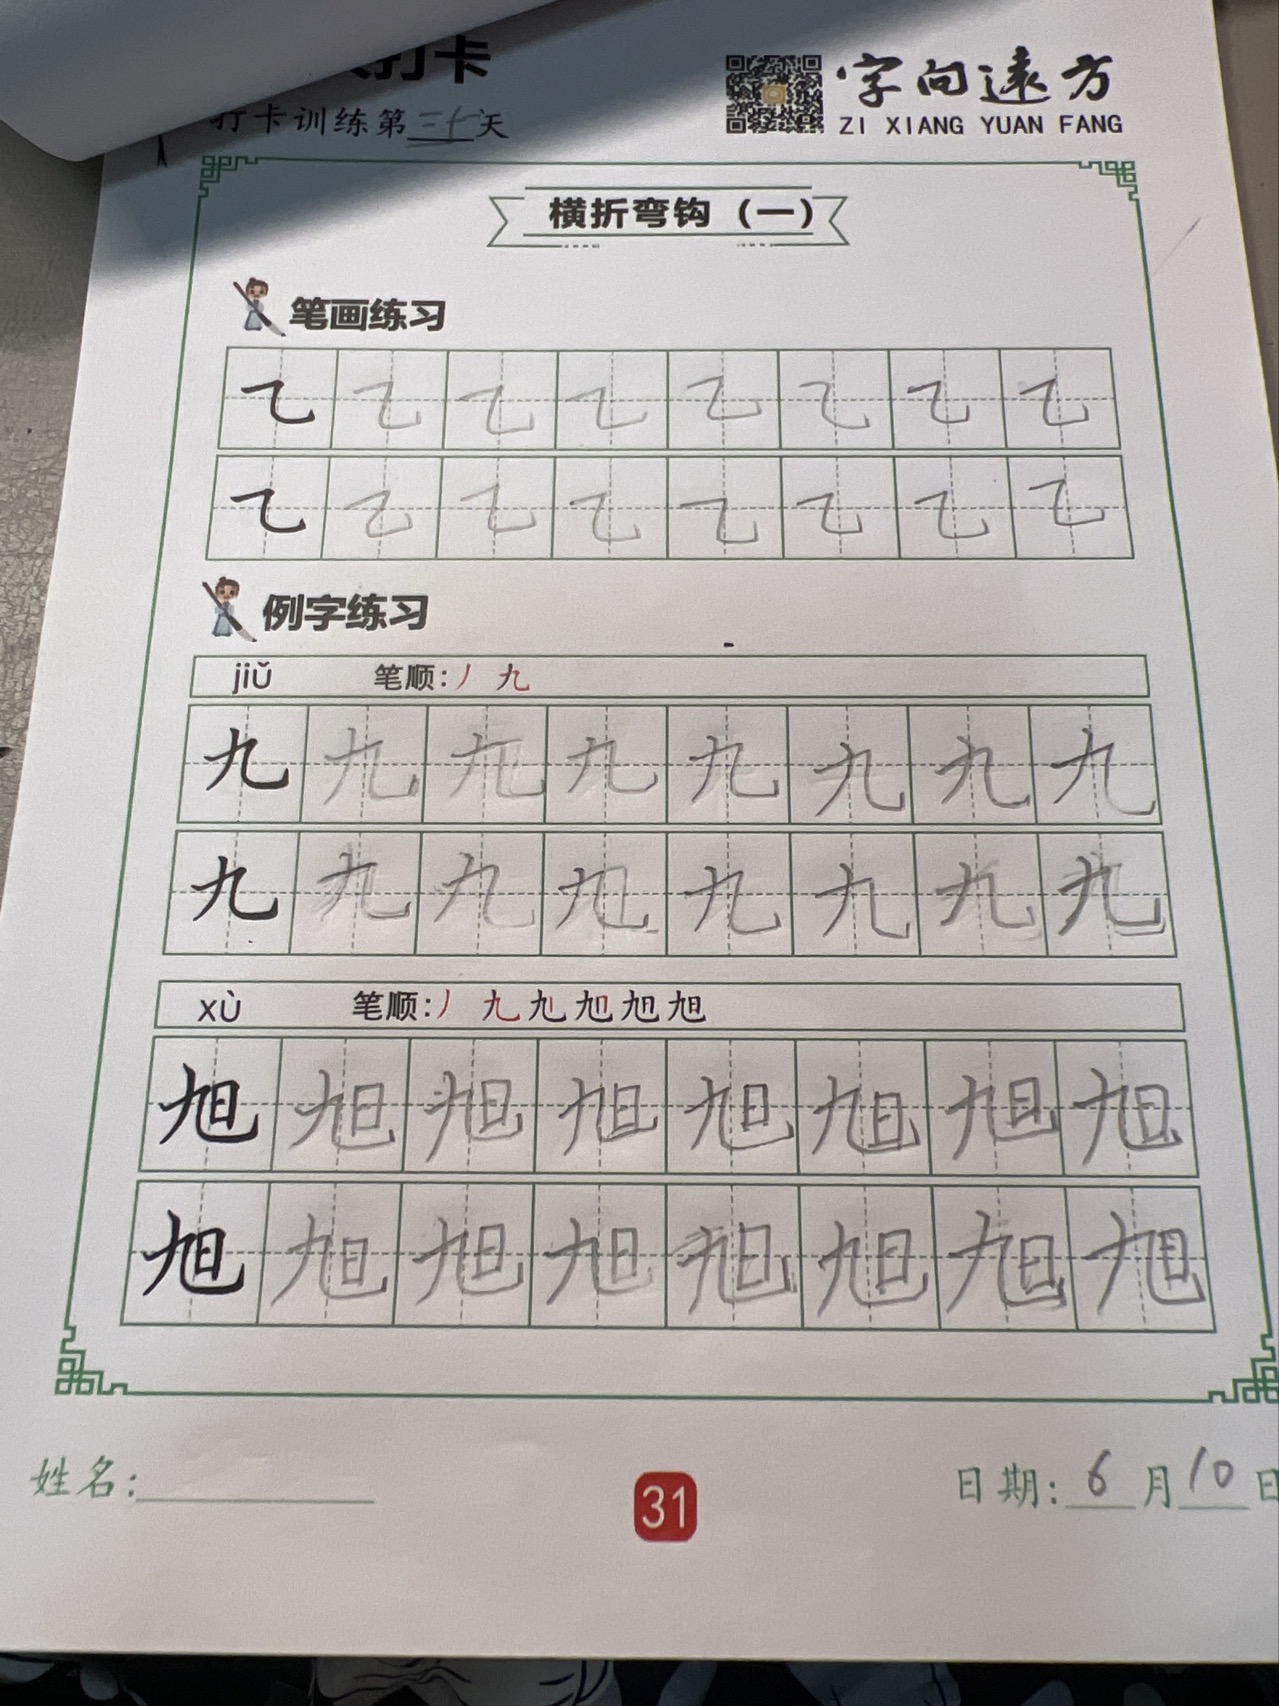 打卡
打卡训练第三十天
字向远方
ZI XIANG YUAN FANG
横折弯钩（一）
笔画练习
㇈ ㇈ ㇈ ㇈ ㇈ ㇈ ㇈ ㇈
㇈ ㇈ ㇈ ㇈ ㇈ ㇈ ㇈ ㇈
例字练习
jiǔ 笔顺：丿 九
九 九 九 九 九 九 九 九
九 九 九 九 九 九 九 九
xù 笔顺：丿 九 旭 旭 旭 旭
旭 旭 旭 旭 旭 旭 旭 旭
旭 旭 旭 旭 旭 旭 旭 旭
姓名：
31
日期：6月10日